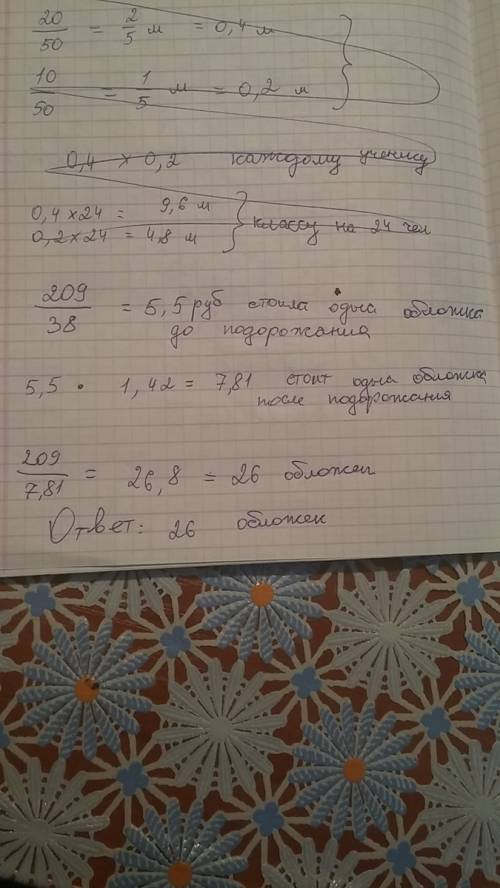 20/50 = 2/5 м = 0,4 м
10/50 = 1/5 м = 0,2 м
0,4 × 0,2 каждому ученику
0,4 × 24 = 9,6 м
0,2 × 24 = 4,8 м } классу на 24 чел
209/38 = 5,5 руб стоила одна обложка
до подорожания
5,5 · 1,42 = 7,81 стоит одна обложка
после подорожания
209/7,81 = 26,8 = 26 обложек
Ответ: 26 обложек